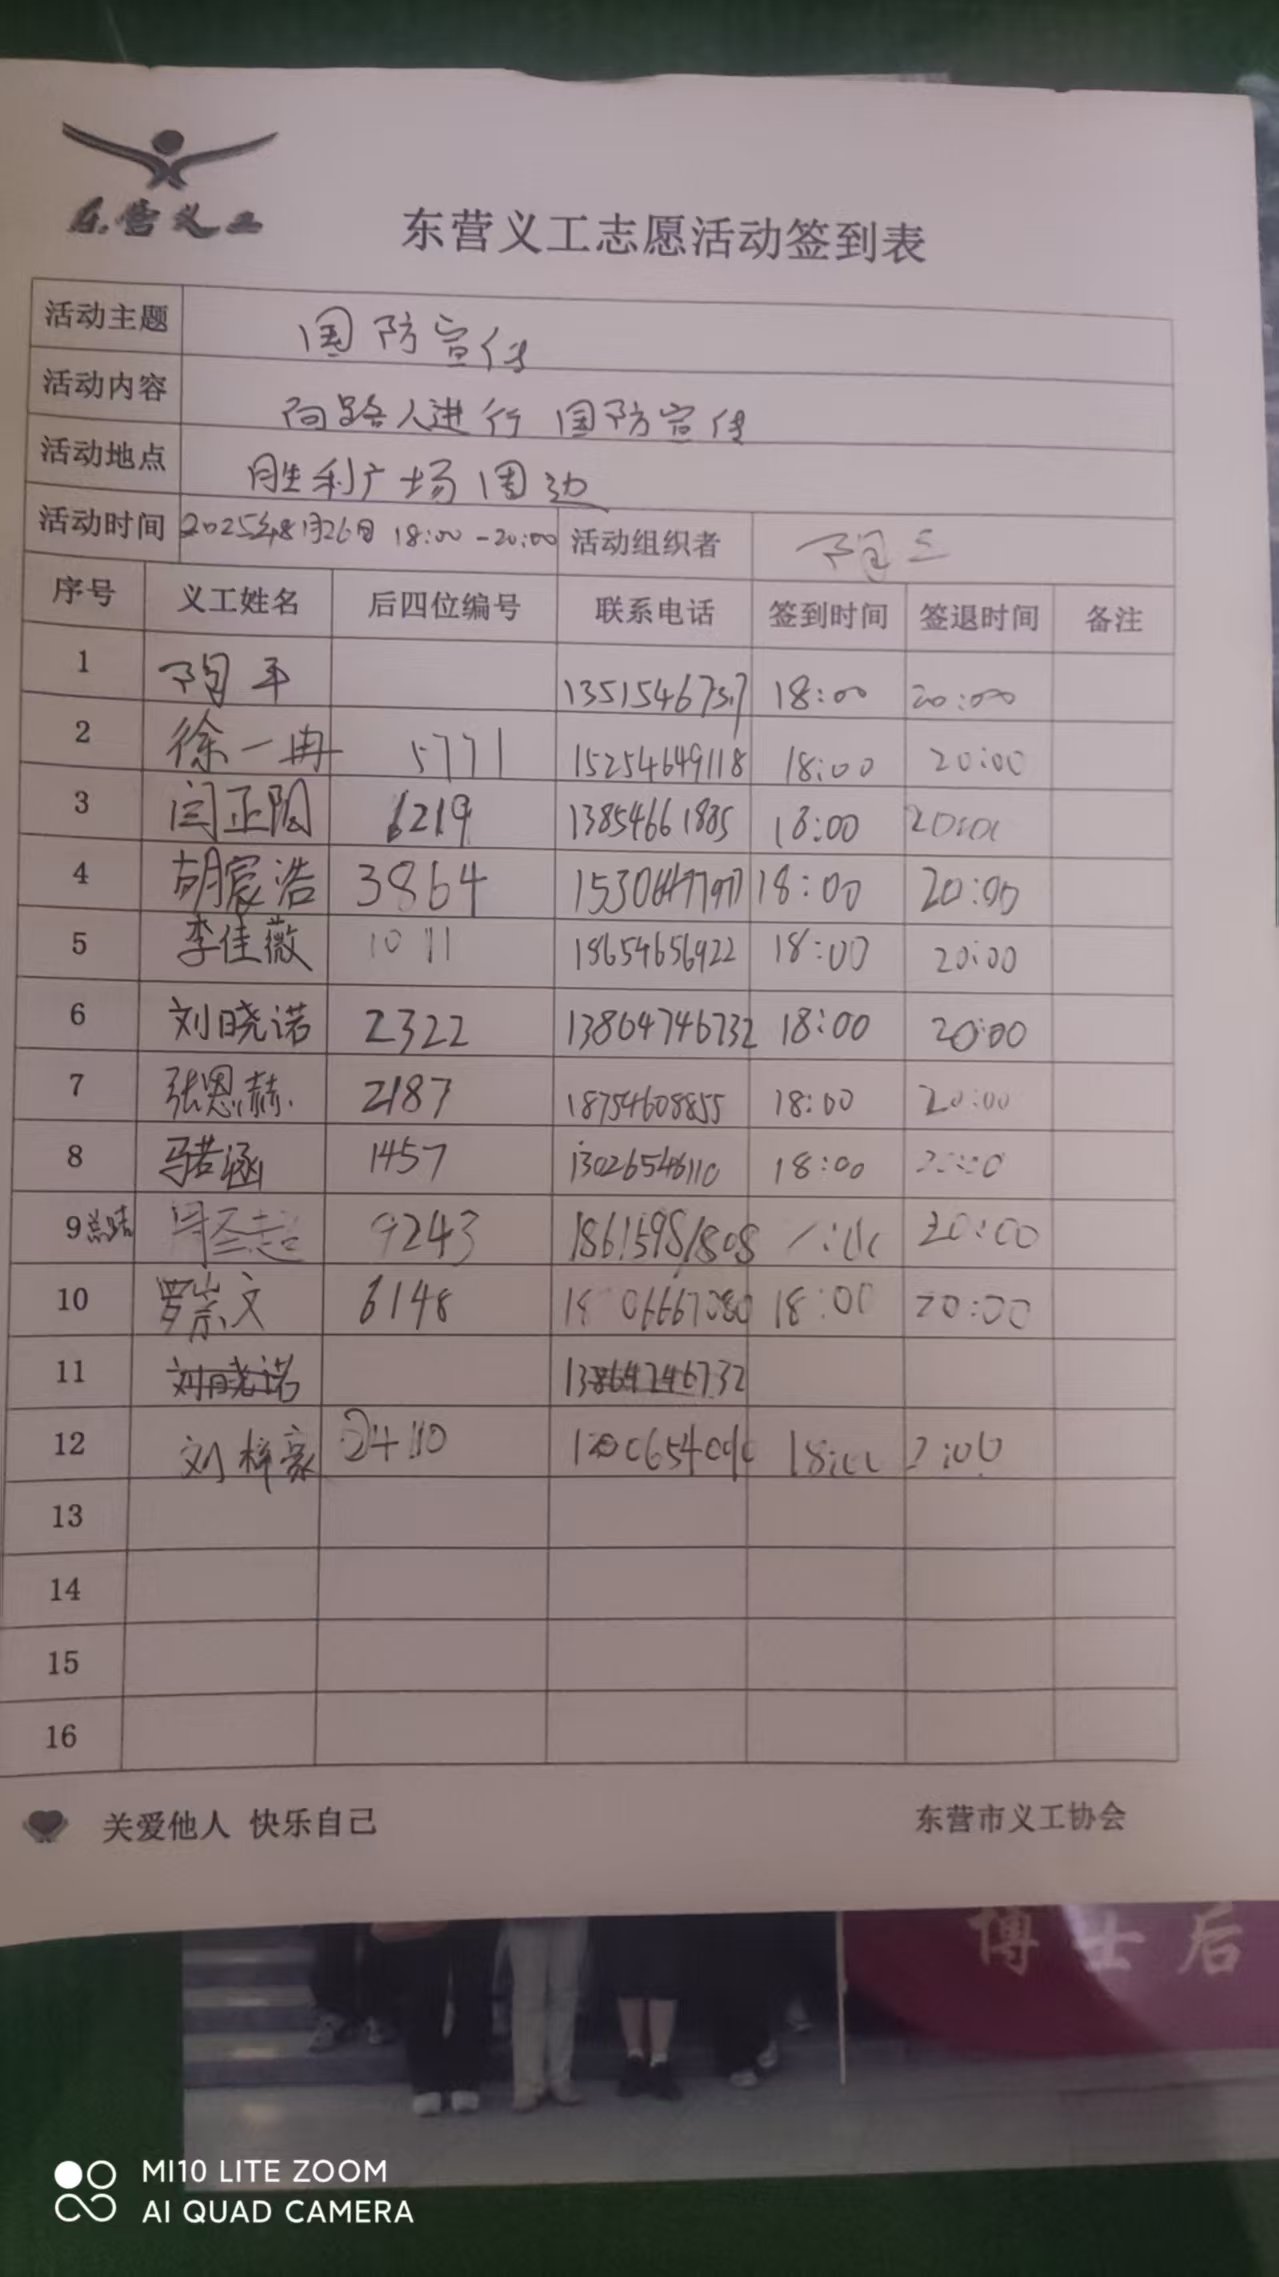 东营义工
东营义工志愿活动签到表
活动主题 国防宣传
活动内容 向路人进行国防宣传
活动地点 胜利广场周边
活动时间 2025年8月26日 18:00-20:00 活动组织者
序号 义工姓名 后四位编号 联系电话 签到时间 签退时间 备注
1 18:00 20:00
2 徐一冉 5771 15254649118 18:00 20:00
3 闫正阳 6219 13854661885 18:00
4 胡宸浩 3864 18:00 20:00
5 李佳薇 1011 18654656922 18:00 20:00
6 刘晓诺 2322 13864746732 18:00 20:00
7 张恩赫 2187 18754608855 18:00 20:00
8 马若涵 1457 13026546110 18:00
9总结 9243 18615981808 20:00
10 罗崇文 6148 18:00 20:00
11 刘晓诺
12 刘梓豪 2410
13
14
15
16
关爱他人 快乐自己 东营市义工协会
博士后
MI10 LITE ZOOM
AI QUAD CAMERA